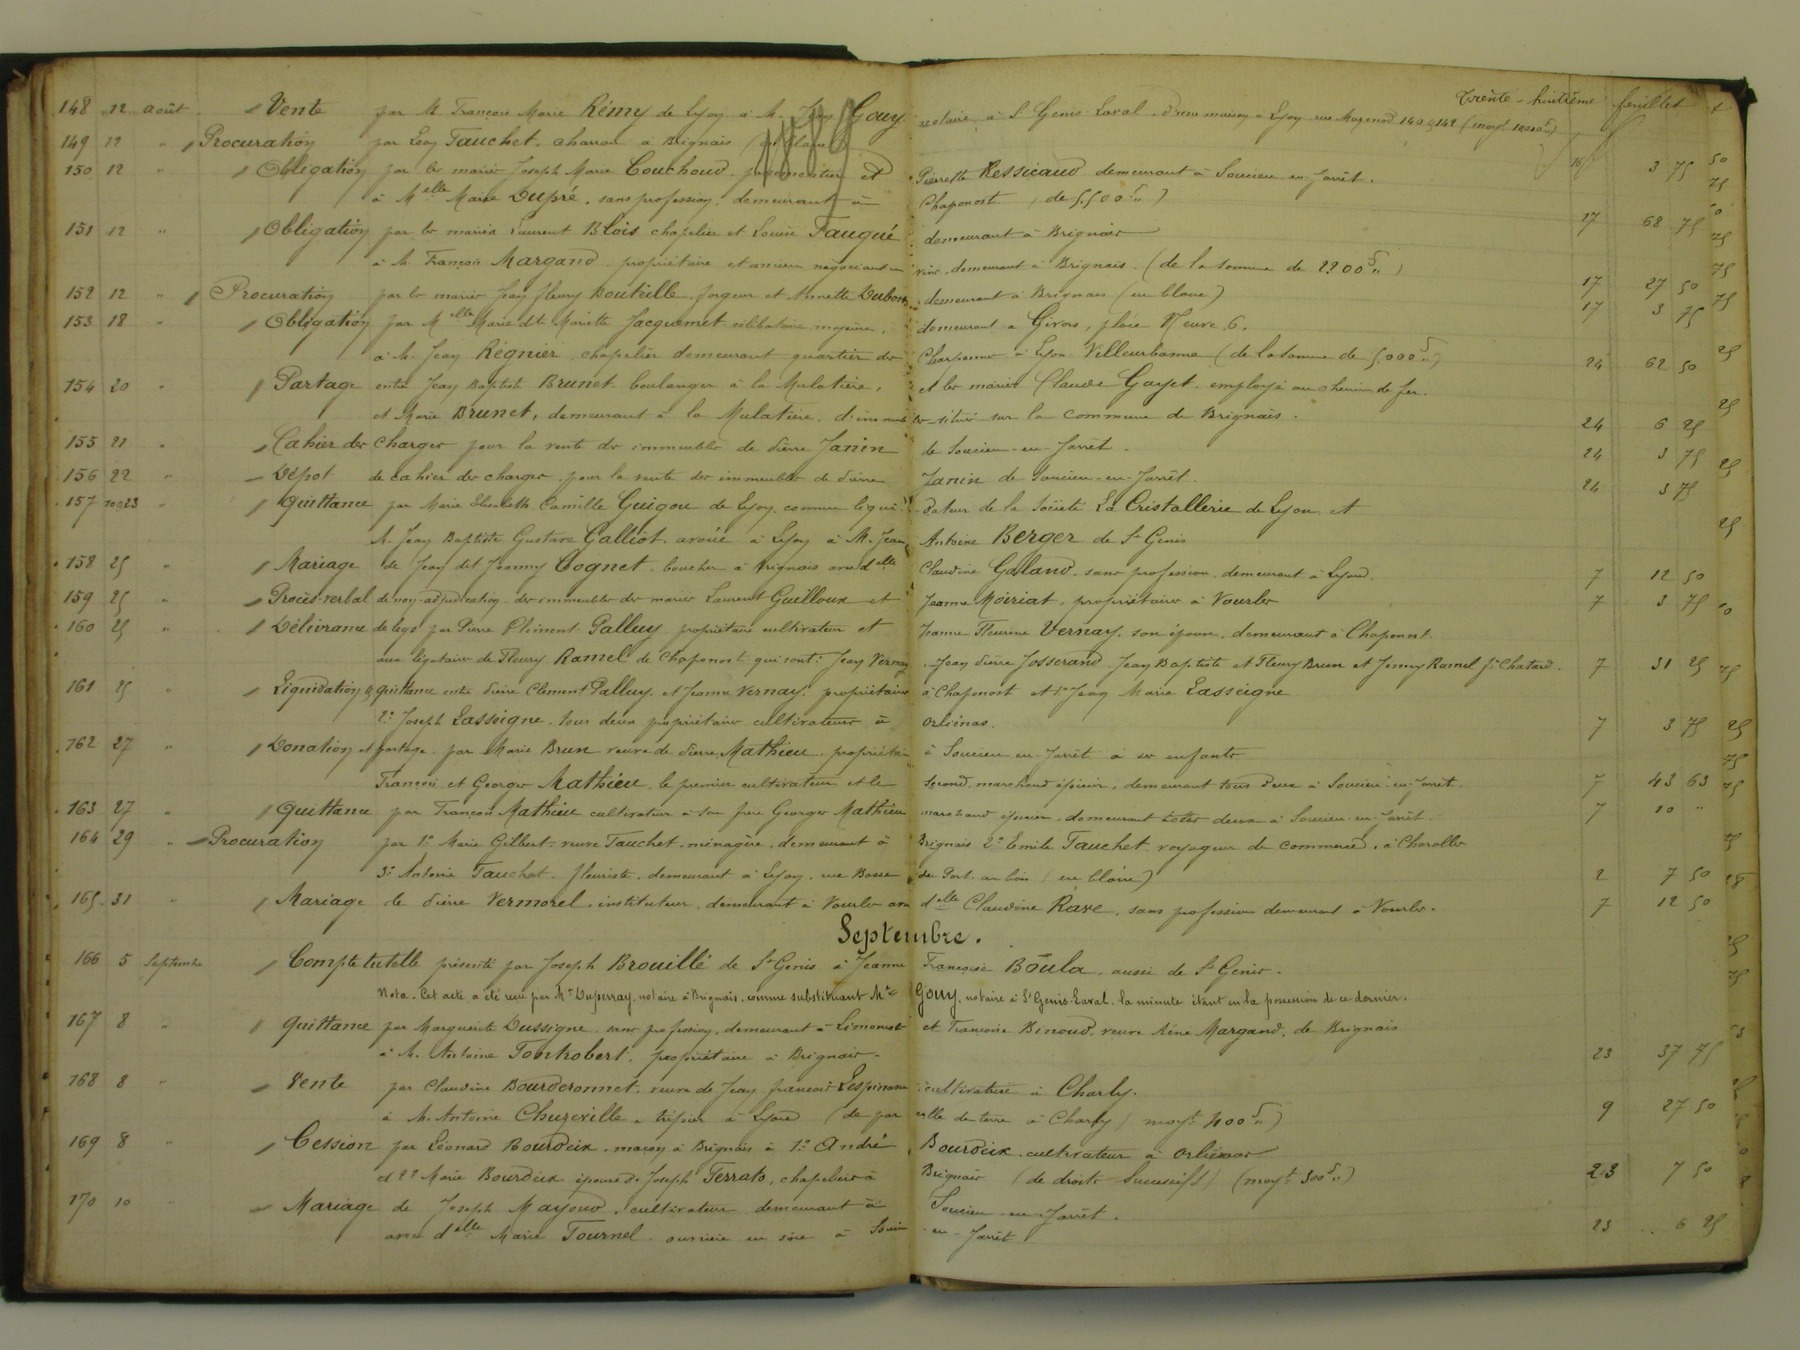 Trente-huitième feuillet
1889
148 12 août Vente par M. François Marie Rémy de Lyon à M. Jean Gouy notaire à St Genis Laval d'une maison à Lyon rue Mazenod 140 & 142
149 12 " Procuration par Léon Fauchet, charron à Brignais (en blanc) 16 3 75
150 12 " Obligation par les mariés Joseph Marie Couchoud, passementier et Pierrette Ressicaud demeurant à Soucieu-en-Jarrêt.
à Melle Marie Dupré, sans profession, demeurant à Chaponost (de 5500 f ") 17 68 75
151 12 " Obligation par les mariés Laurent Blois chapelier et Louise Fauqué demeurant à Brignais
à M. François Margand propriétaire et ancien négociant en vins, demeurant à Brignais (de la somme de 2200 f ") 17 27 50
152 12 " Procuration par les mariés Jean fleury Bouteille, forgeur et Annette Dubois, demeurant à Brignais (en blanc) 17 3 75
153 18 " Obligation par Melle Marie dite Mariette Jacquemet célibataire majeure, demeurant à Givors, place Neuve 6.
à M. Jean Régnier, chapelier demeurant quartier des Charpennes à Lyon Villeurbanne (de la somme de 5.000 f ") 24 62 50
154 20 " Partage entre Jean Baptiste Brunet boulanger à la Mulatière, et les mariés Claude Gayet, employé au chemin de fer.
et Marie Brunet, demeurant à la Mulatière, d'immeubles situés sur la commune de Brignais. 24 6 25
155 21 " Cahier des charges pour la vente des immeubles de Pierre Janin de Soucieu-en-Jarrêt. 24 3 75
156 22 " Dépôt de cahier des charges pour la vente des immeubles de Pierre Janin de Soucieu-en-Jarrêt. 24 3 75
157 20&23 " Quittance par Marie Elisabeth Camille Guigou de Lyon, comme liquidateur de la Société La Cristallerie de Lyon et
M. Jean Baptiste Gustave Galliot, avoué à Lyon à M. Jean Antoine Berger de St Genis
158 25 " Mariage de Jean dit Joanny Cognet, boucher à Brignais avec delle Claudine Galand, sans profession, demeurant à Lyon. 7 12 50
159 25 " Procès-verbal de non-adjudication des immeubles des mariés Laurent Guilloux et Jeanne Moiriat, propriétaires à Vourles 7 3 75
160 25 " Délivrance de legs par Pierre Clément Palluy propriétaire cultivateur et Jeanne Fleurine Vernay, son épouse, demeurant à Chaponost.
aux légataires de Fleury Ramel de Chaponost qui sont: Jean Vernay, Jean Pierre Josserand, Jean Baptiste et Fleury Brun et Jenny Ramel fe Chatard. 7 31 25
161 25 " Liquidation & quittance entre Pierre Clément Palluy et Jeanne Vernay, propriétaires à Chaponost et 1° Jean Marie Lasseigne
2° Joseph Lasseigne, tous deux propriétaires cultivateurs à Orliénas. 7 3 75
162 27 " Donation et partage par Marie Brun veuve de Pierre Mathieu propriétaire à Soucieu-en-Jarrêt à ses enfants
François et Georges Mathieu, le premier cultivateur et le second, marchand épicier, demeurant tous deux à Soucieu-en-Jarrêt. 7 43 63
163 27 " Quittance par François Mathieu cultivateur à son frère Georges Mathieu marchand épicier, demeurant tous deux à Soucieu-en-Jarrêt. 7 10 "
164 29 " Procuration par 1° Marie Gilbert veuve Fauchet, ménagère, demeurant à Brignais 2° Emile Fauchet voyageur de commerce, à Charolles
3° Antonie Fauchet, fleuriste, demeurant à Lyon, rue Basse du Port au bois (en blanc) 2 7 50
165 31 " Mariage de Pierre Vermorel, instituteur, demeurant à Vourles avec delle Claudine Rave, sans profession demeurant à Vourles. 7 12 50
Septembre.
166 5 Septembre Compte tutelle présenté par Joseph Brouillé de St Genis à Jeanne Françoise Boula, aussi de St Genis.
Nota. Cet acte a été reçu par Me Duperray, notaire à Brignais, comme substituant Me Gouy, notaire à St Genis-Laval, la minute étant en la possession de ce dernier.
167 8 " Quittance par Marguerite Dussigne, sans profession, demeurant à Limonest et Françoise Binoud, veuve Margand, de Brignais
à M. Antoine Fontrobert, propriétaire à Brignais. 23 37 75
168 8 " Vente par Claudine Bourderonnet, veuve de Jean françois Lespinasse cultivatrice à Charly.
à M. Antoine Chuzeville, tripier à Lyon (de parcelle de terre à Charly) moyt 400 f ") 9 27 50
169 8 " Cession par Léonard Bourdeix, maçon à Brignais à 1° André Bourdeix, cultivateur à Orliénas
et 2° Marie Bourdeix épouse de Joseph Ferrato, chapelier à Brignais (de droits successifs) (moyt 300 f ") 23 7 50
170 10 " Mariage de Joseph Mayoud, cultivateur demeurant à Soucieu-en-Jarrêt.
avec delle Marie Tournel, ouvrière en soie à Soucieu-en-Jarrêt 23 6 25